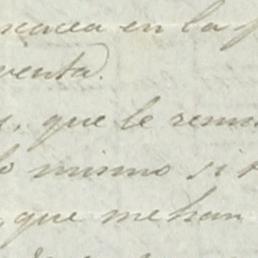 en la
venta.
, que le remi
lo mismo si
, que me han